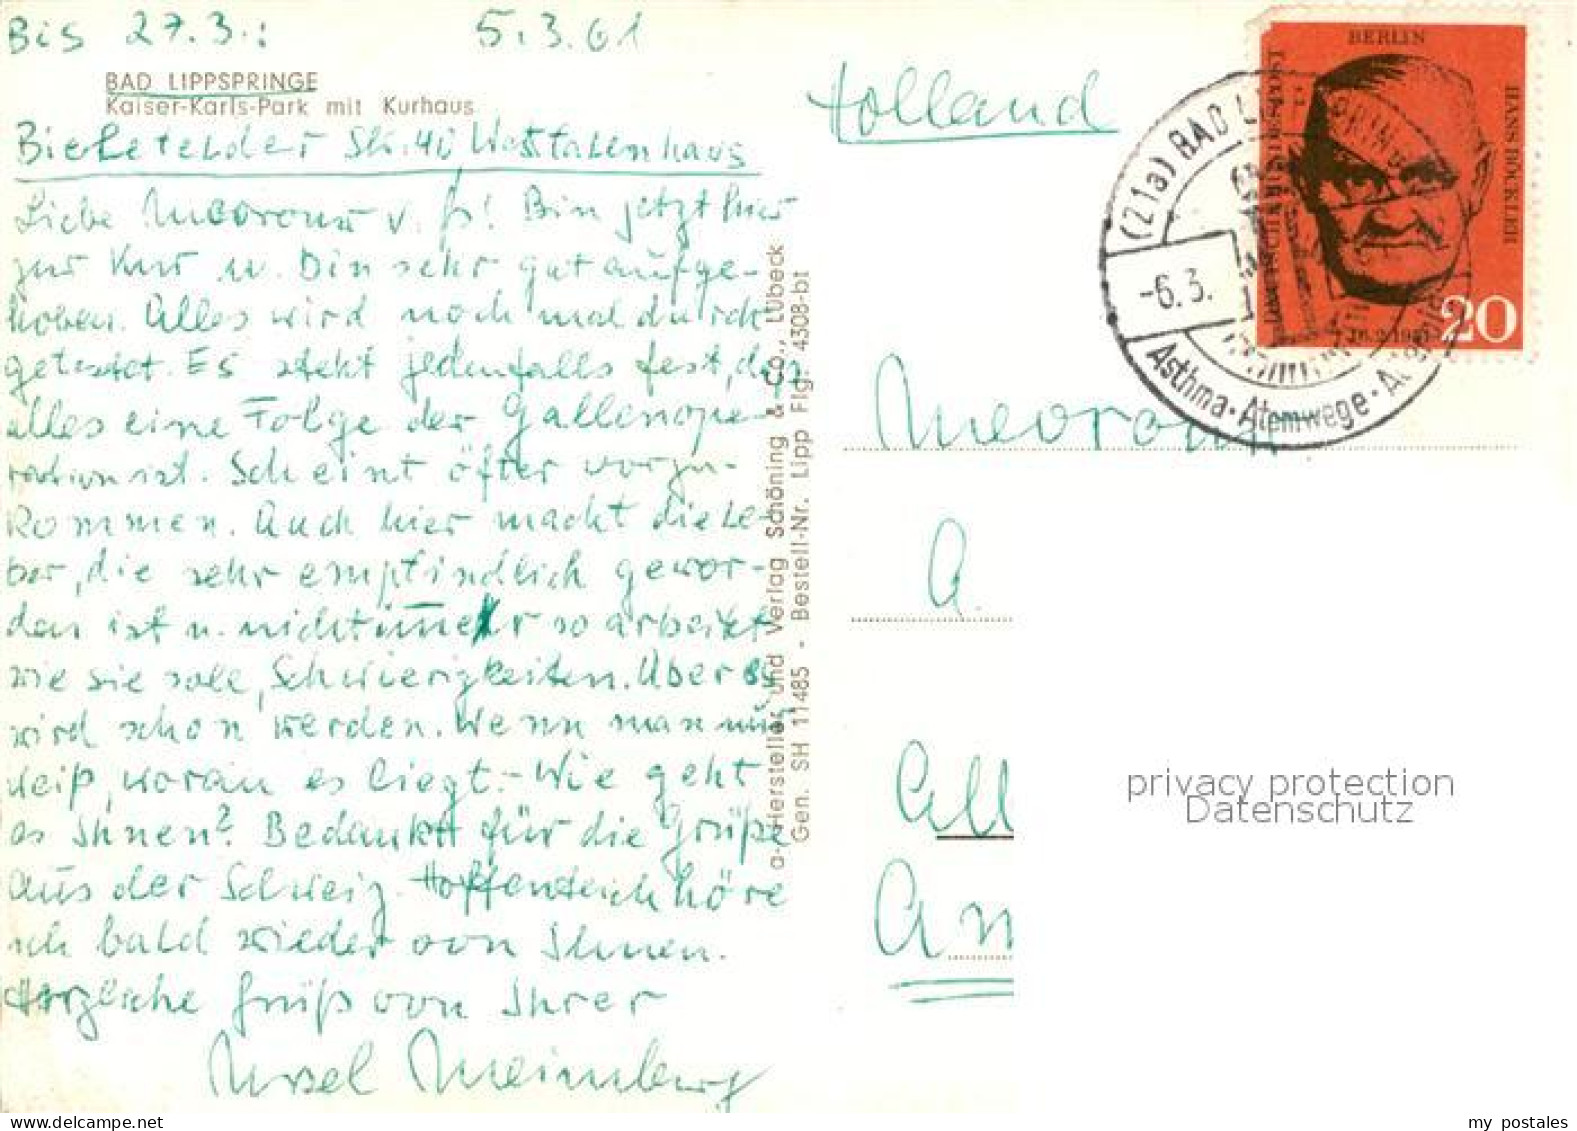 Bis 27.3.: 5.3.61
BAD LIPPSPRINGE
Kaiser-Karls-Park mit Kurhaus
Bielefelder Str. 40 Westfalenhaus
Liebe v. Bin jetzt hier
zur Kur u. bin sehr gut aufge-
hoben. Alles wird noch mal durch
getestet. Es steht jedenfalls fest, daß
alles eine Folge der Gallenope-
ration ist. Scheint öfter vorzu-
kommen. Auch hier macht die Le-
ber, die sehr empfindlich gewor-
den ist u. nicht immer so arbeitet
wie sie soll, Schwierigkeiten. Aber es
wird schon werden. Wenn man nur
weiß, woran es liegt. - Wie geht
es Ihnen? Bedankt für die Grüße
aus der Schweiz. Hoffentlich höre
ich bald wieder von Ihnen.
Herzliche Grüß von Ihrer
Ursel Meimberg
a- Hersteller und Verlag Schöning & Co., Lübeck
Gen. SH 11485 - Bestell-Nr. Lipp Flg. 4308-bt
Holland
BERLIN
HANS BÖCKLER
20
(21a) BAD
-6.3.
Asthma · Atemwege ·
A.
All
Am
privacy protection
Datenschutz
my postales